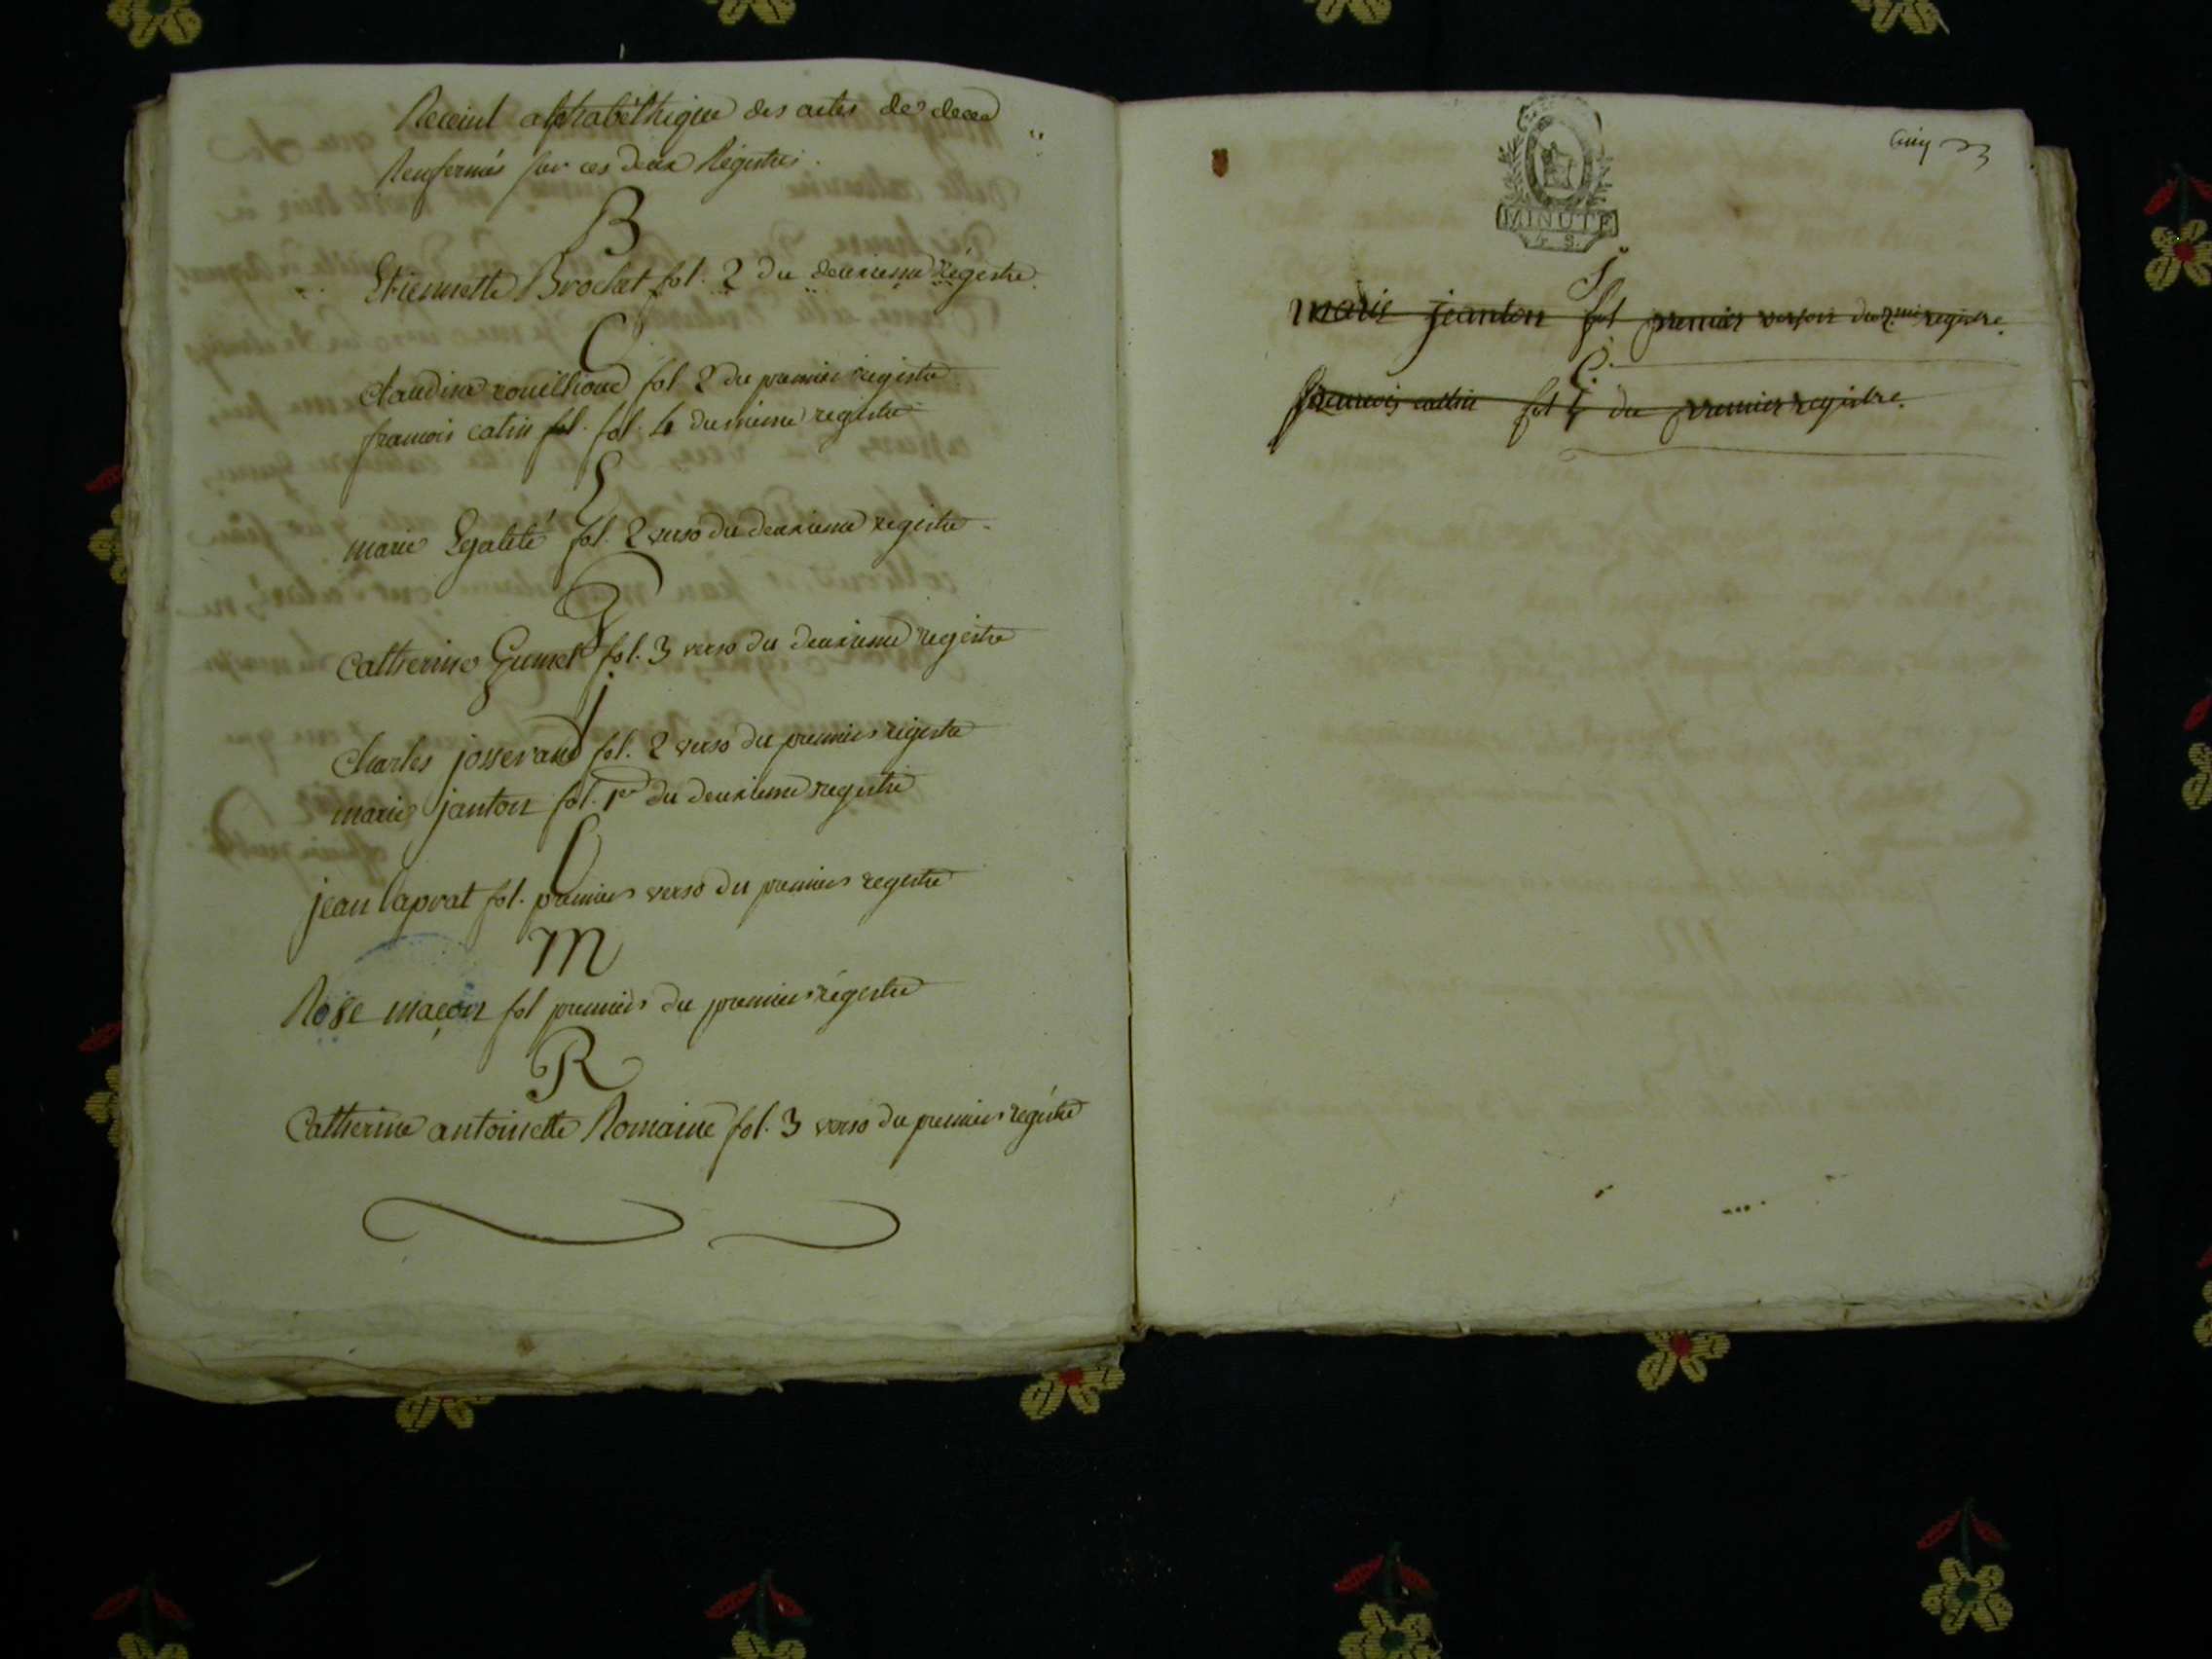 Receuil alphabéthique des actes de deces
Renfermés sur ces deux Régistres.
B
Etiennette Brochet fol. 2 du deuxieme régistre.
C.
Claudine fol 2 du premier registre
francois catin fol. fol. 4 du meme registre
E
marie Egalité fol. 2 verso du deuxieme registre.
G
Catherine Gumet fol. 3 verso du deuxieme registre
j
Charles josserand fol. 2 verso du premier registre
marie janton fol. 1er du deuxieme registre
L
jean Laprat fol. premier verso du premier registre
M
Rose maçon fol premier du premier régistre
R
Catherine antoinette Romaine fol. 3 verso du premier régistre
MINUTE
4. S.
J
marie jeanton fol premier du 2.me registre.
C.
francois cattin fol 4 du premier registre.